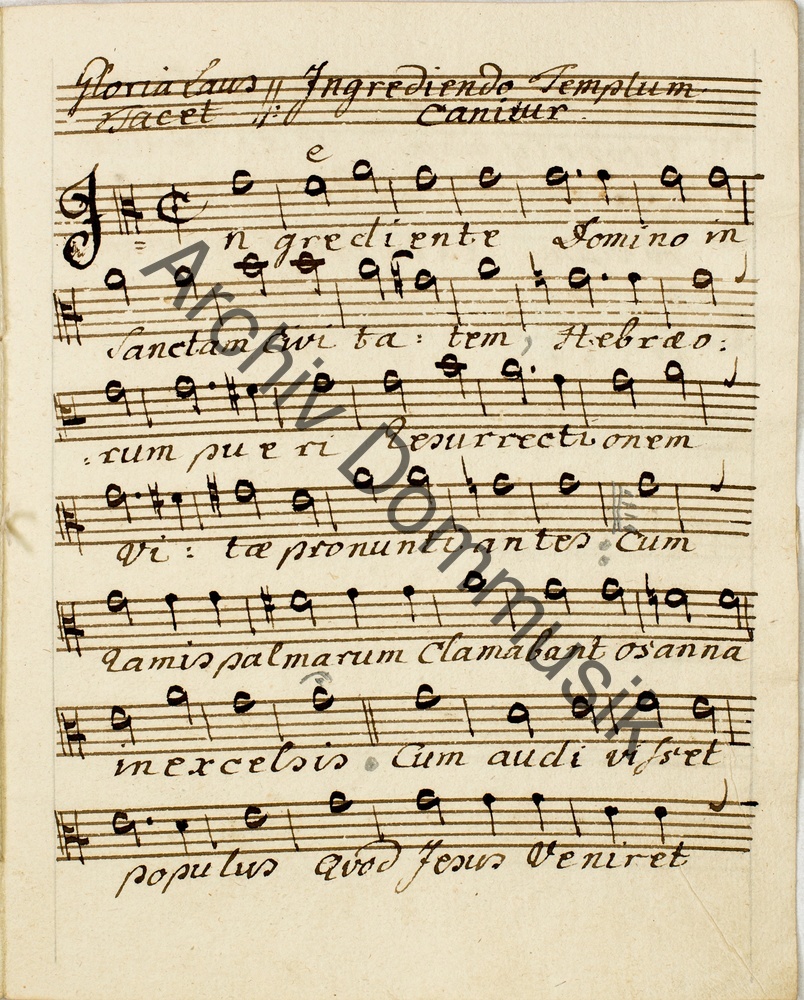 Gloria Laus // Ingrediendo Templum
Tacet // Canitur.
e
In gredi ente Domino in
Sanctam Civi ta : tem, Hebræo :
: rum pu e ri Resurrecti onem
Vi : tæ pronunti antes Cum
Ramis palmarum Clamabant osanna
in excelsis. Cum audi visset
populus Quod Jesus Veniret
Archiv Dommusik